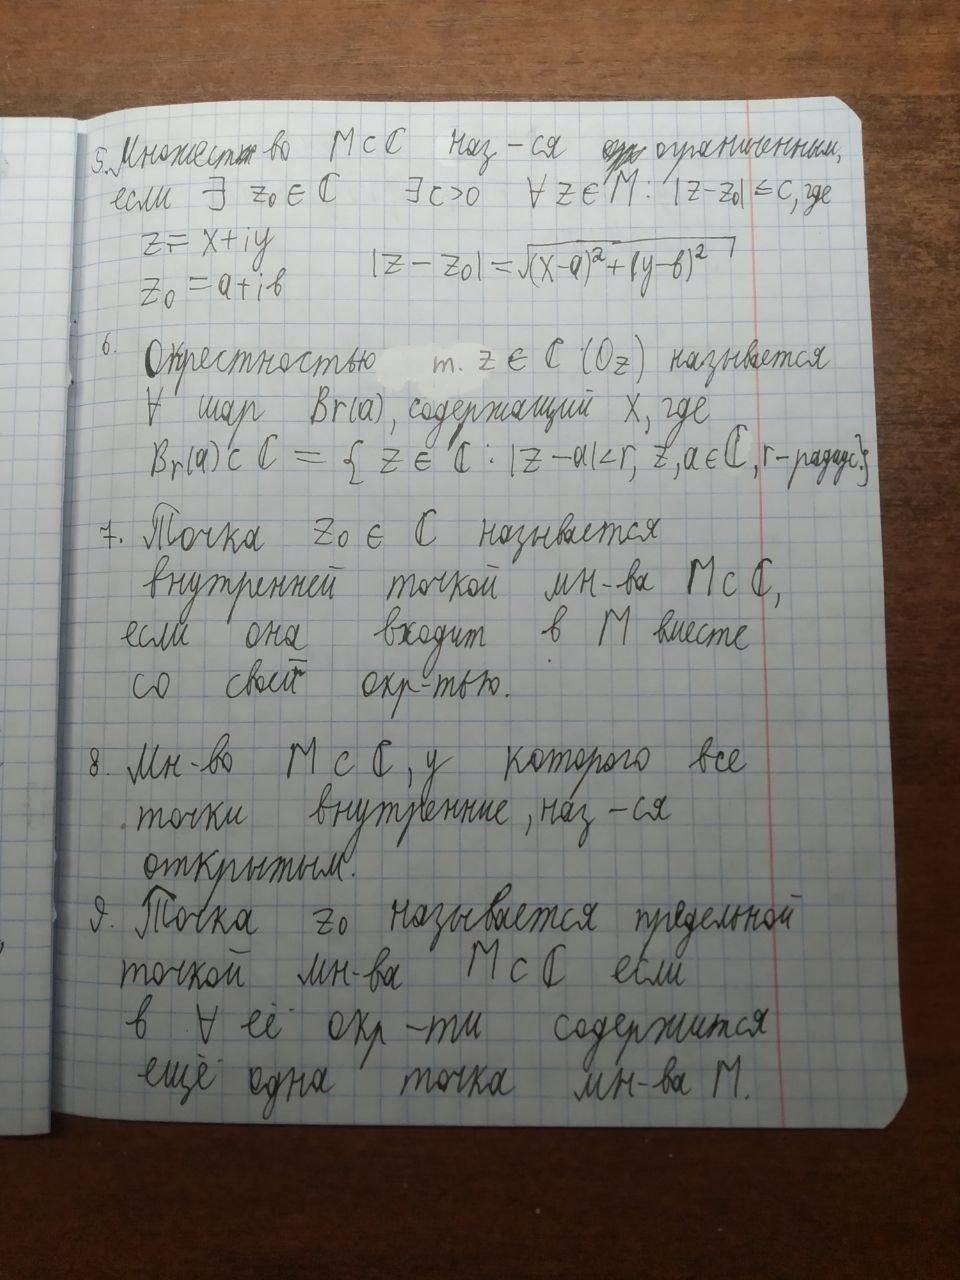 5. Множест-во M⊂ℂ наз-ся ограниченным,
если ∃ z₀∈ℂ ∃c>0 ∀z∈M: |z-z₀|≤c, где
z = x+iy
z₀ = a+ib |z-z₀| = √(x-a)²+(y-b)²
6. Окрестностью т. z∈ℂ (Oz) называется
∀ шар Br(a), содержащий X, где
Br(a)⊂ℂ = { z∈ℂ : |z-a|<r, z,a∈ℂ, r-радиус.}
7. Точка z₀∈ℂ называется
внутренней точкой мн-ва M⊂ℂ,
если она входит в M вместе
со своей окр-тью.
8. Мн-во M⊂ℂ, у которого все
точки внутренние, наз-ся
открытым.
9. Точка z₀ называется предельной
точкой мн-ва M⊂ℂ если
в ∀ её окр-ти содержится
ещё одна точка мн-ва M.